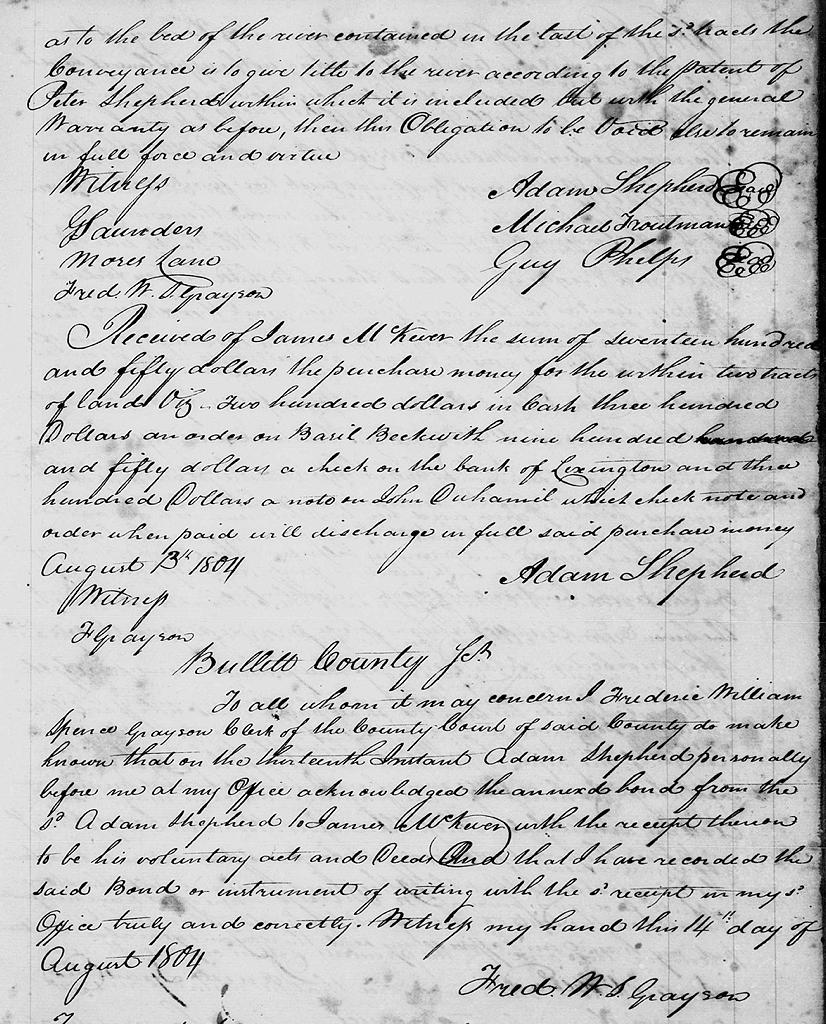 as to the bed of the river contained in the last of the sd. tracts the
Conveyance is to give title to the river according to the patent of
Peter Shepherd within which it is included but with the general
Warranty as before, then this Obligation to be Void else to remain
in full force and virtue
Witness Adam Shepherd Seal
J Saunders Michael Troutman Seal
Moses Lane Guy Phelps Seal
Fred. W. S. Grayson
Received of James McKever the sum of seventeen hundred
and fifty dollars the purchase money for the within two tracts
of land Viz. Two hundred dollars in Cash three hundred
Dollars an order on Basil Beckwith nine hundred
and fifty dollars a check on the bank of Lexington and three
hundred Dollars a note on John Duhamil which check note and
order when paid will discharge in full said purchase money
August 13th 1804 Adam Shepherd
Witness
F Grayson
Bullitt County Sct.
To all whom it may concern I Frederic William
Spence Grayson Clerk of the County Court of said County do make
known that on the thirteenth Instant Adam Shepherd personally
before me at my Office acknowledged the annexd bond from the
sd. Adam Shepherd to James McKever with the receipt thereon
to be his voluntary acts and Deeds And that I have recorded the
said Bond or instrument of writing with the sd. receipt in my sd.
Office truly and correctly. Witness my hand this 14th day of
August 1804
Fred. W. S. Grayson